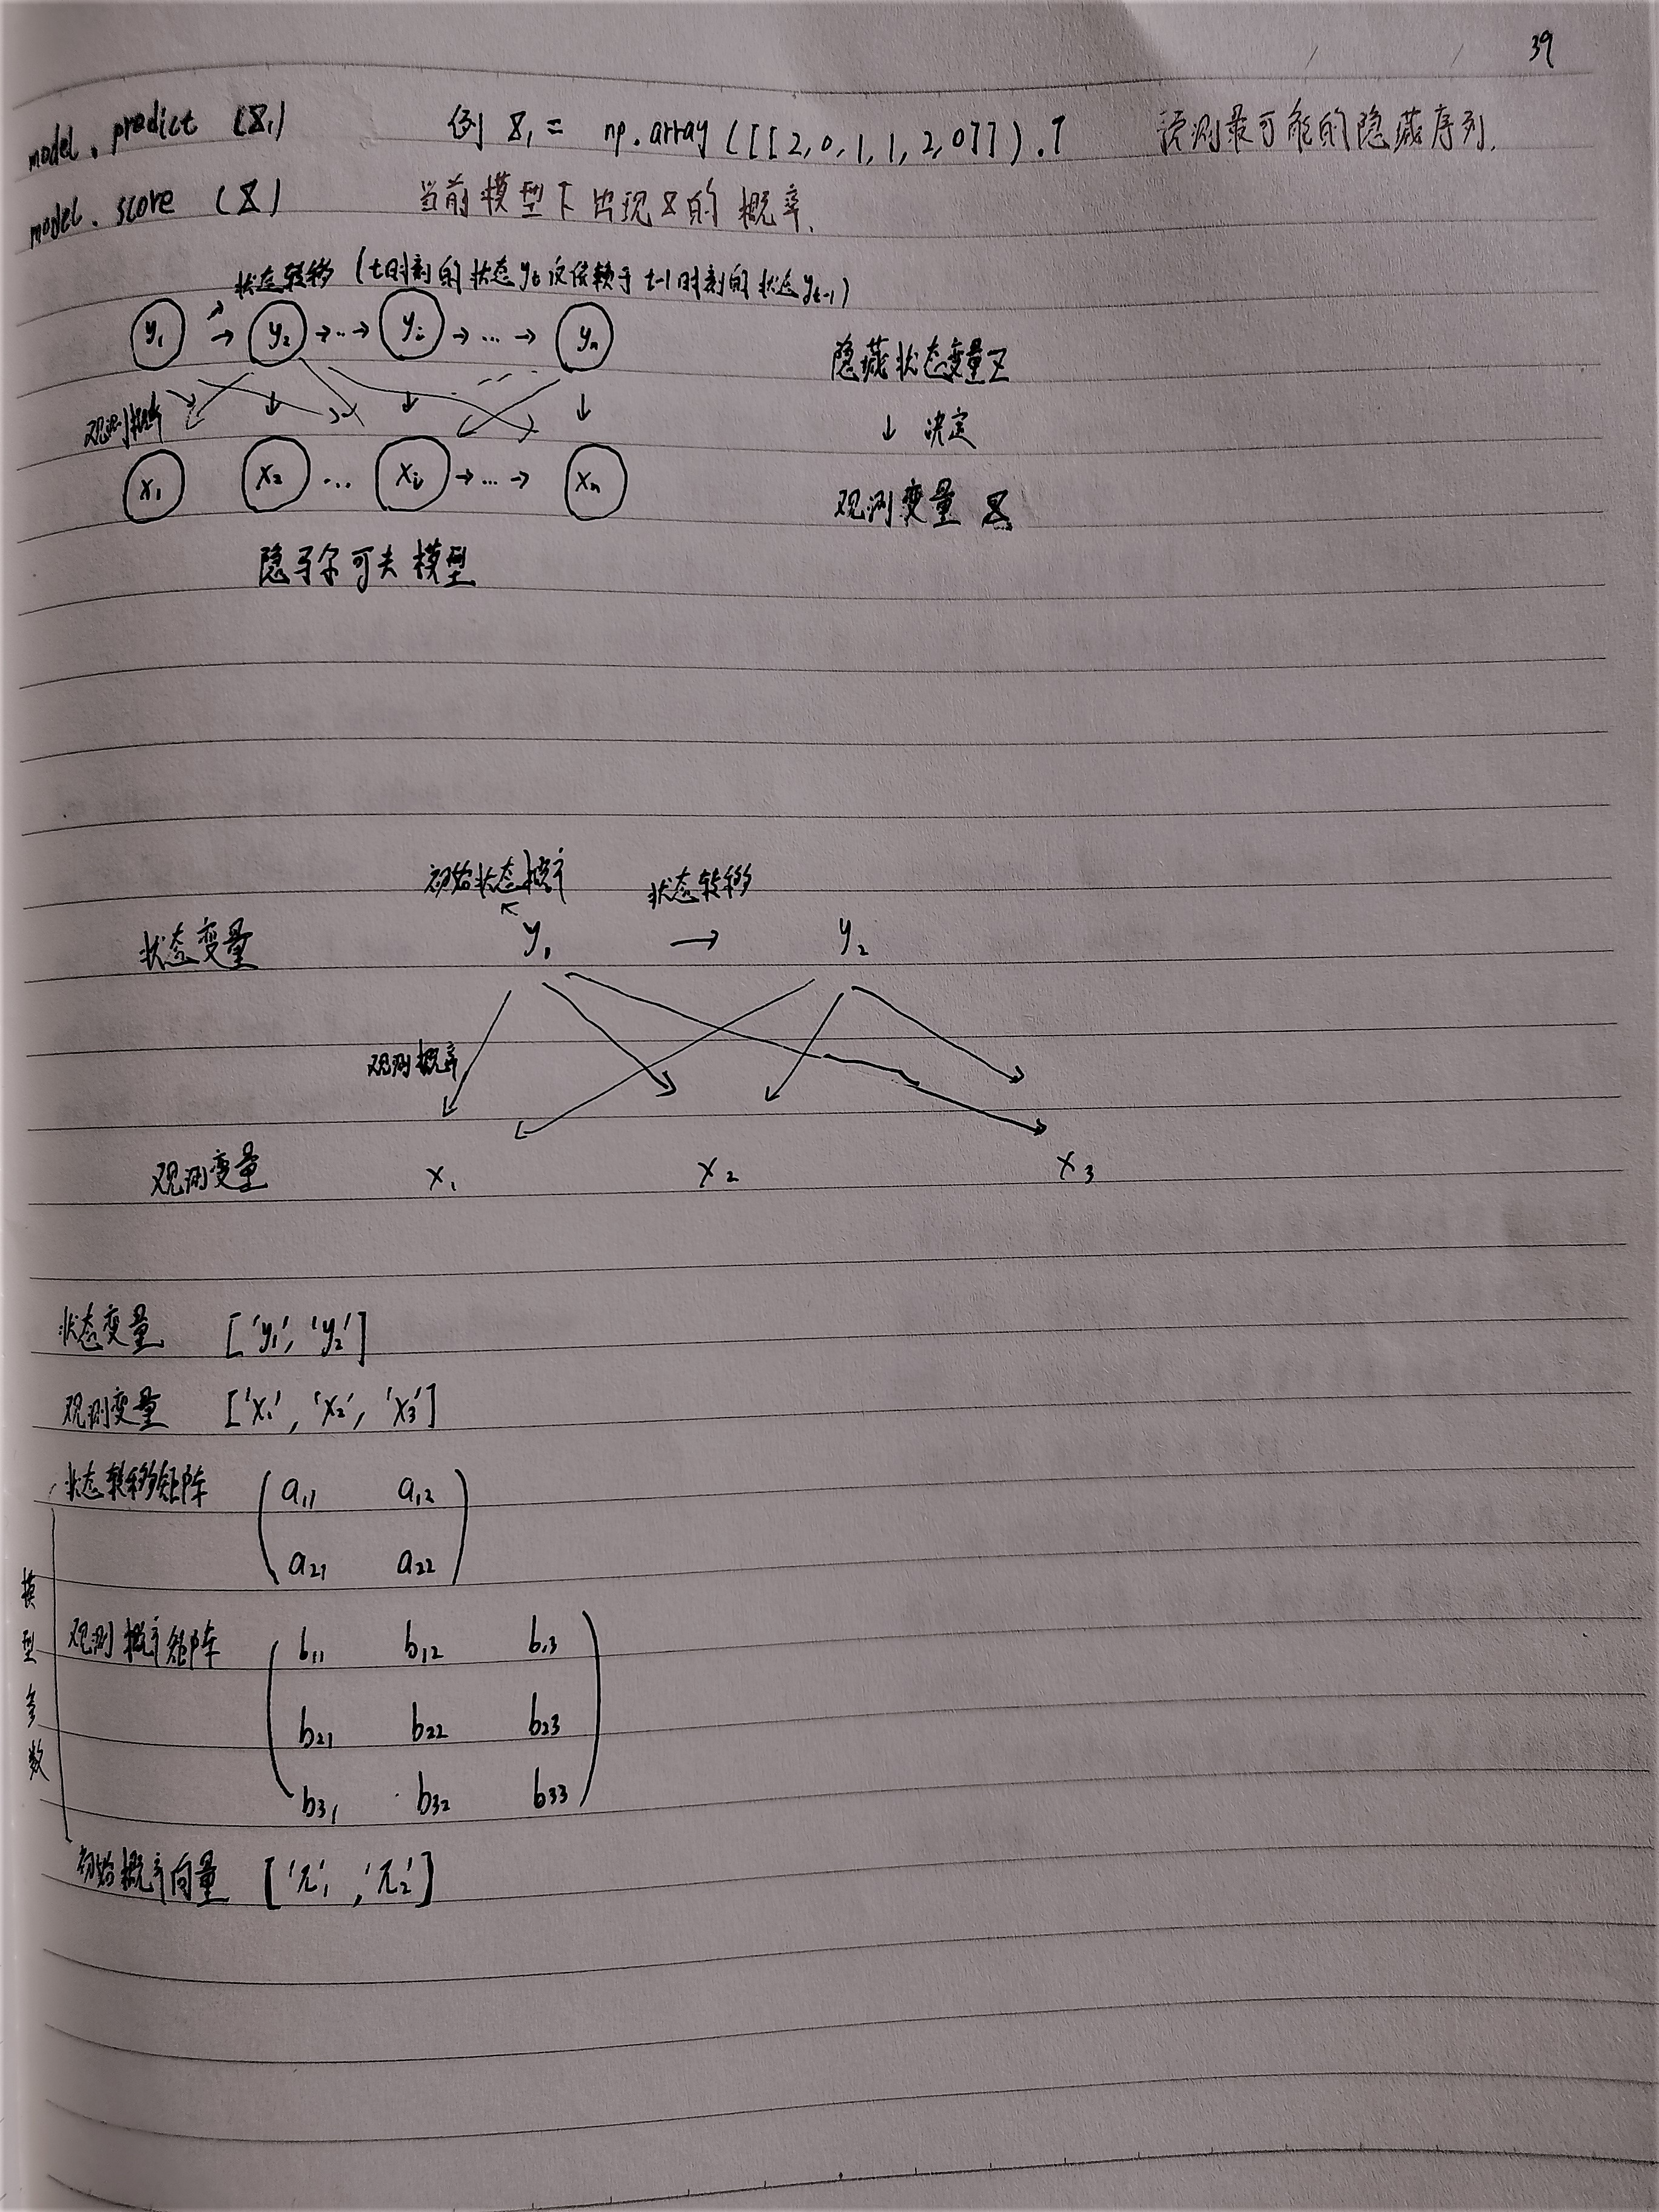 39
model.predict (X₁) 例 X₁ = np.array([[2,0,1,1,2,0]]).T 预测最可能的隐藏序列.
model.score (X) 当前模型下出现X的概率.
状态转移 (t时刻的状态yₜ仅依赖于t-1时刻的状态yₜ₋₁)
y₁ → y₂ →...→ yᵢ →...→ yₙ
隐藏状态变量Z
观测概率
↓ 决定
x₁ x₂ ... xᵢ →...→ xₙ
观测变量 X
隐马尔可夫模型
初始状态概率 状态转移
状态变量 y₁ → y₂
观测概率
观测变量 x₁ x₂ x₃
状态变量 ['y₁', 'y₂']
观测变量 ['x₁', 'x₂', 'x₃']
状态转移矩阵 a₁₁ a₁₂
a₂₁ a₂₂
模型参数
观测概率矩阵 b₁₁ b₁₂ b₁₃
b₂₁ b₂₂ b₂₃
b₃₁ b₃₂ b₃₃
初始概率向量 ['π₁', 'π₂']